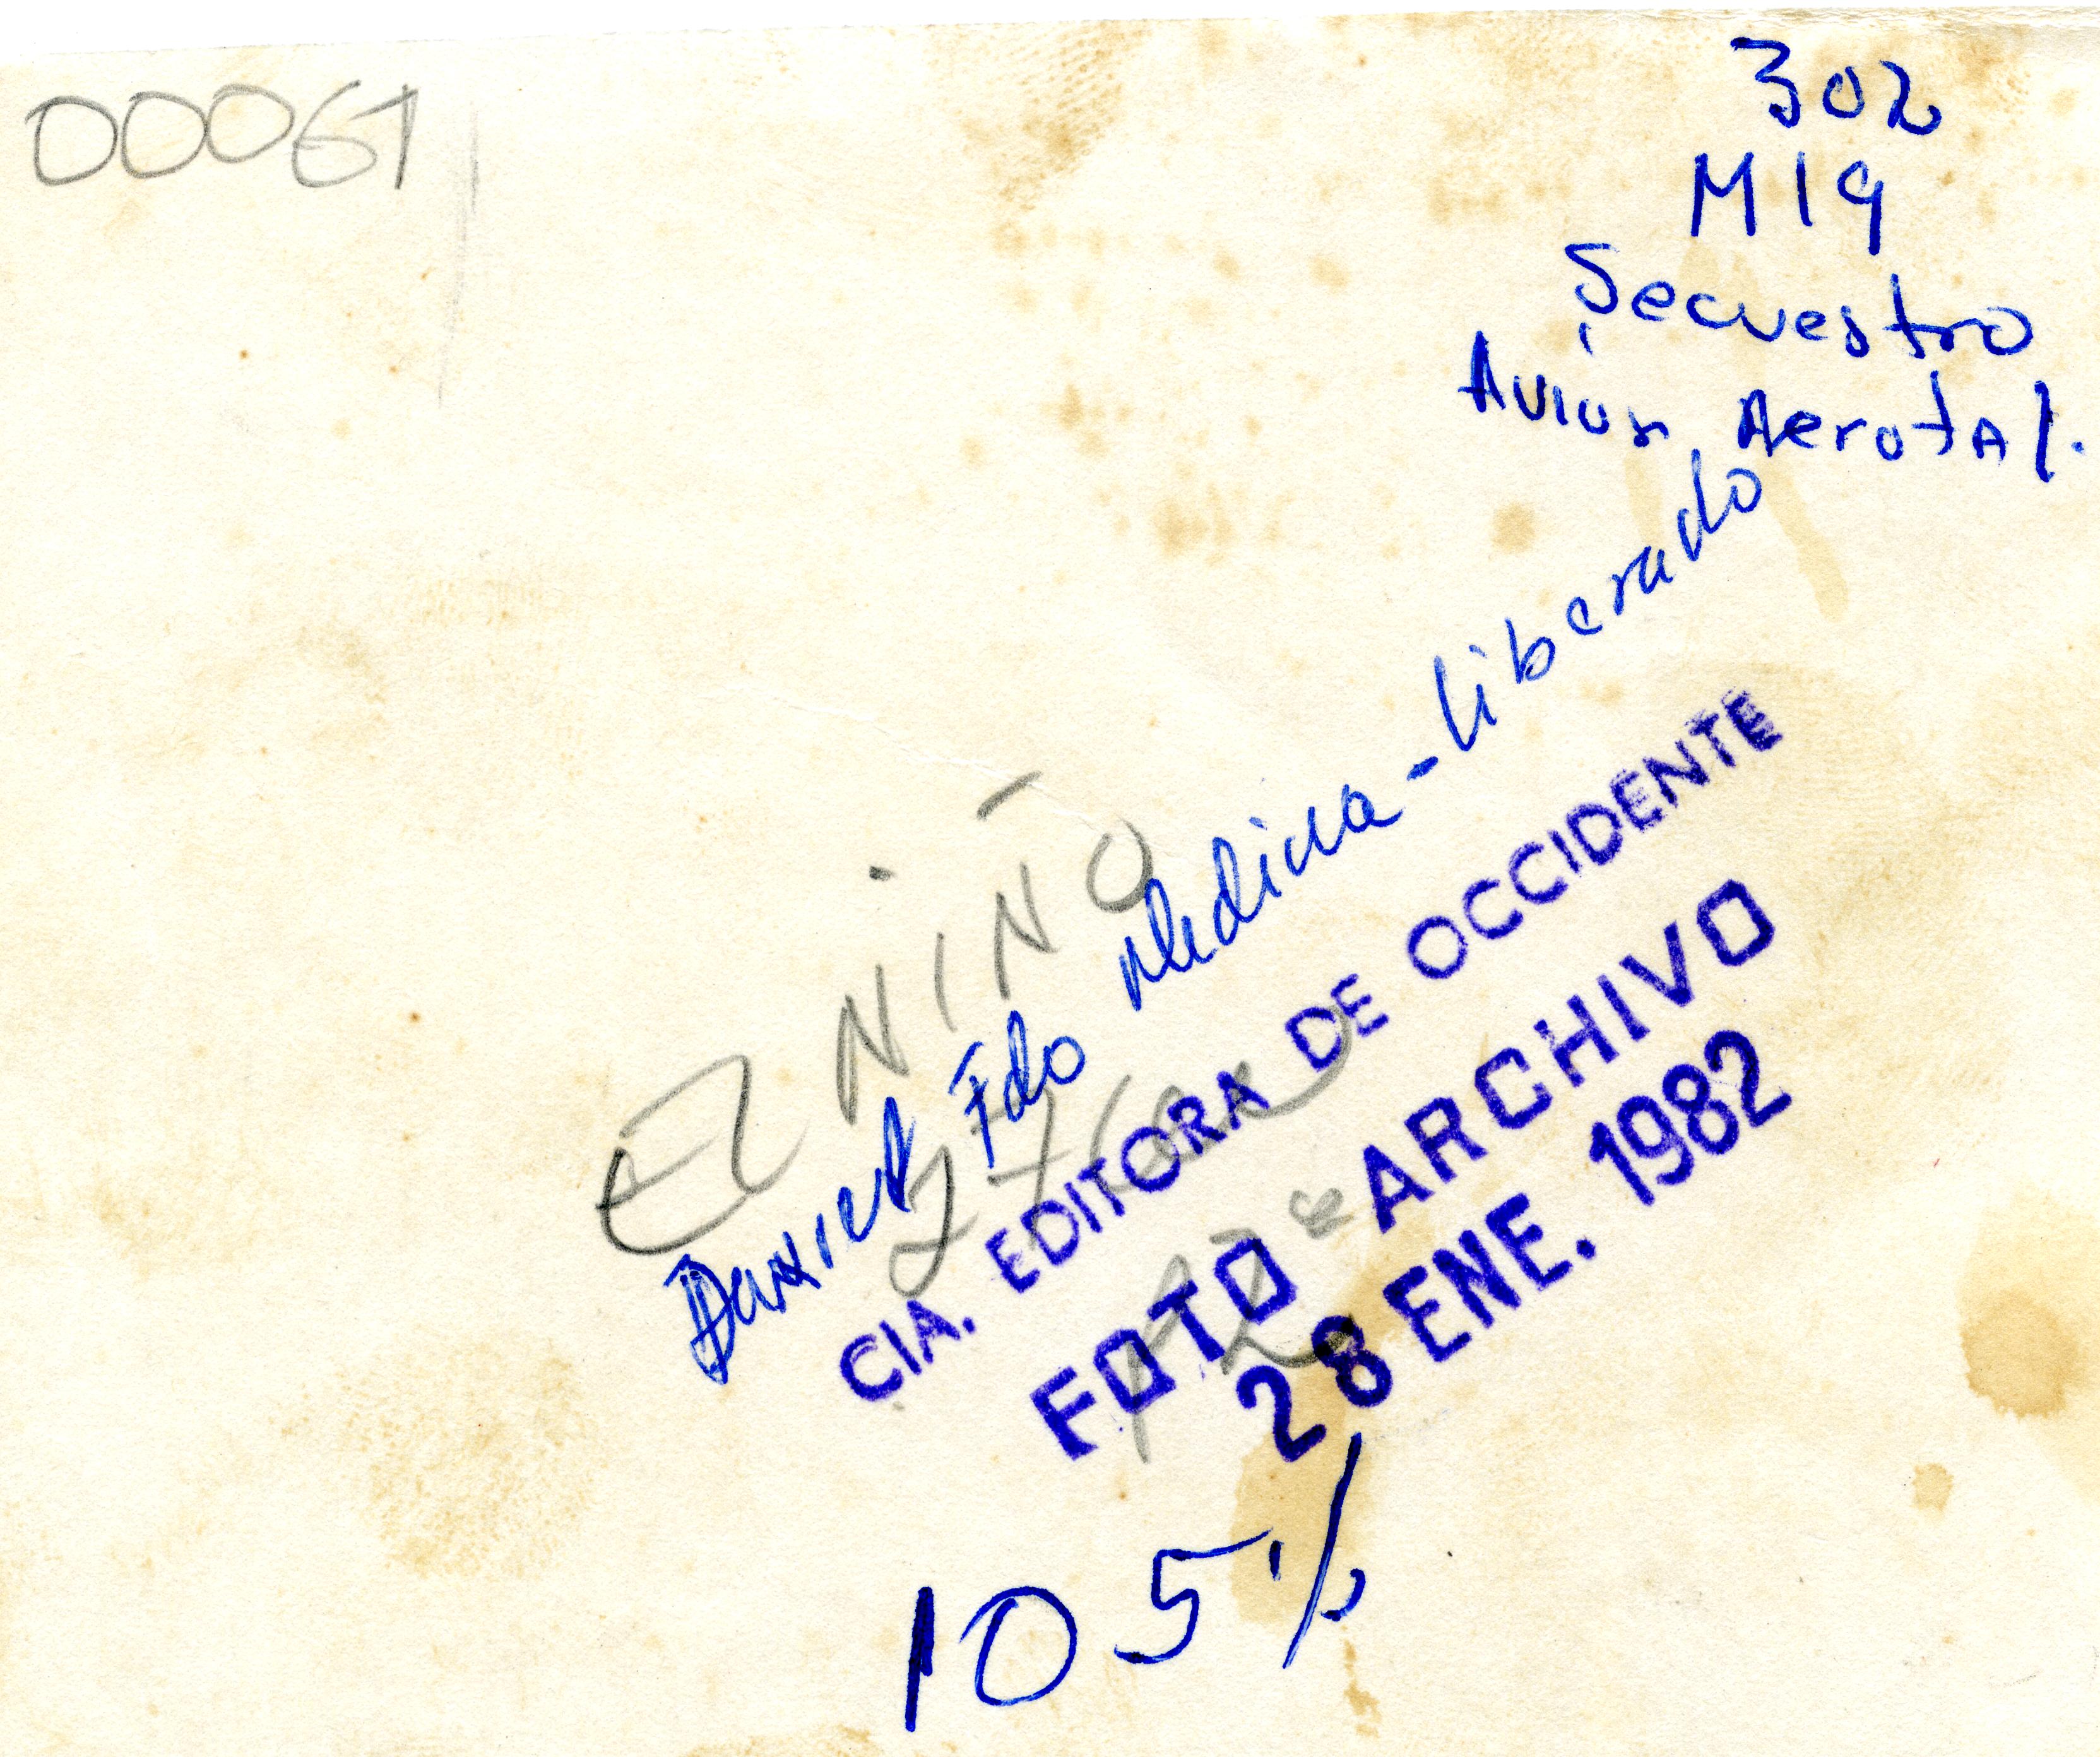 00061
302
M19
Secuestro
Avion Aerotal.
EL NIÑO
Daniel Fdo Medina - liberado
CIA. EDITORA DE OCCIDENTE
FOTO ARCHIVO
28 ENE. 1982
105%